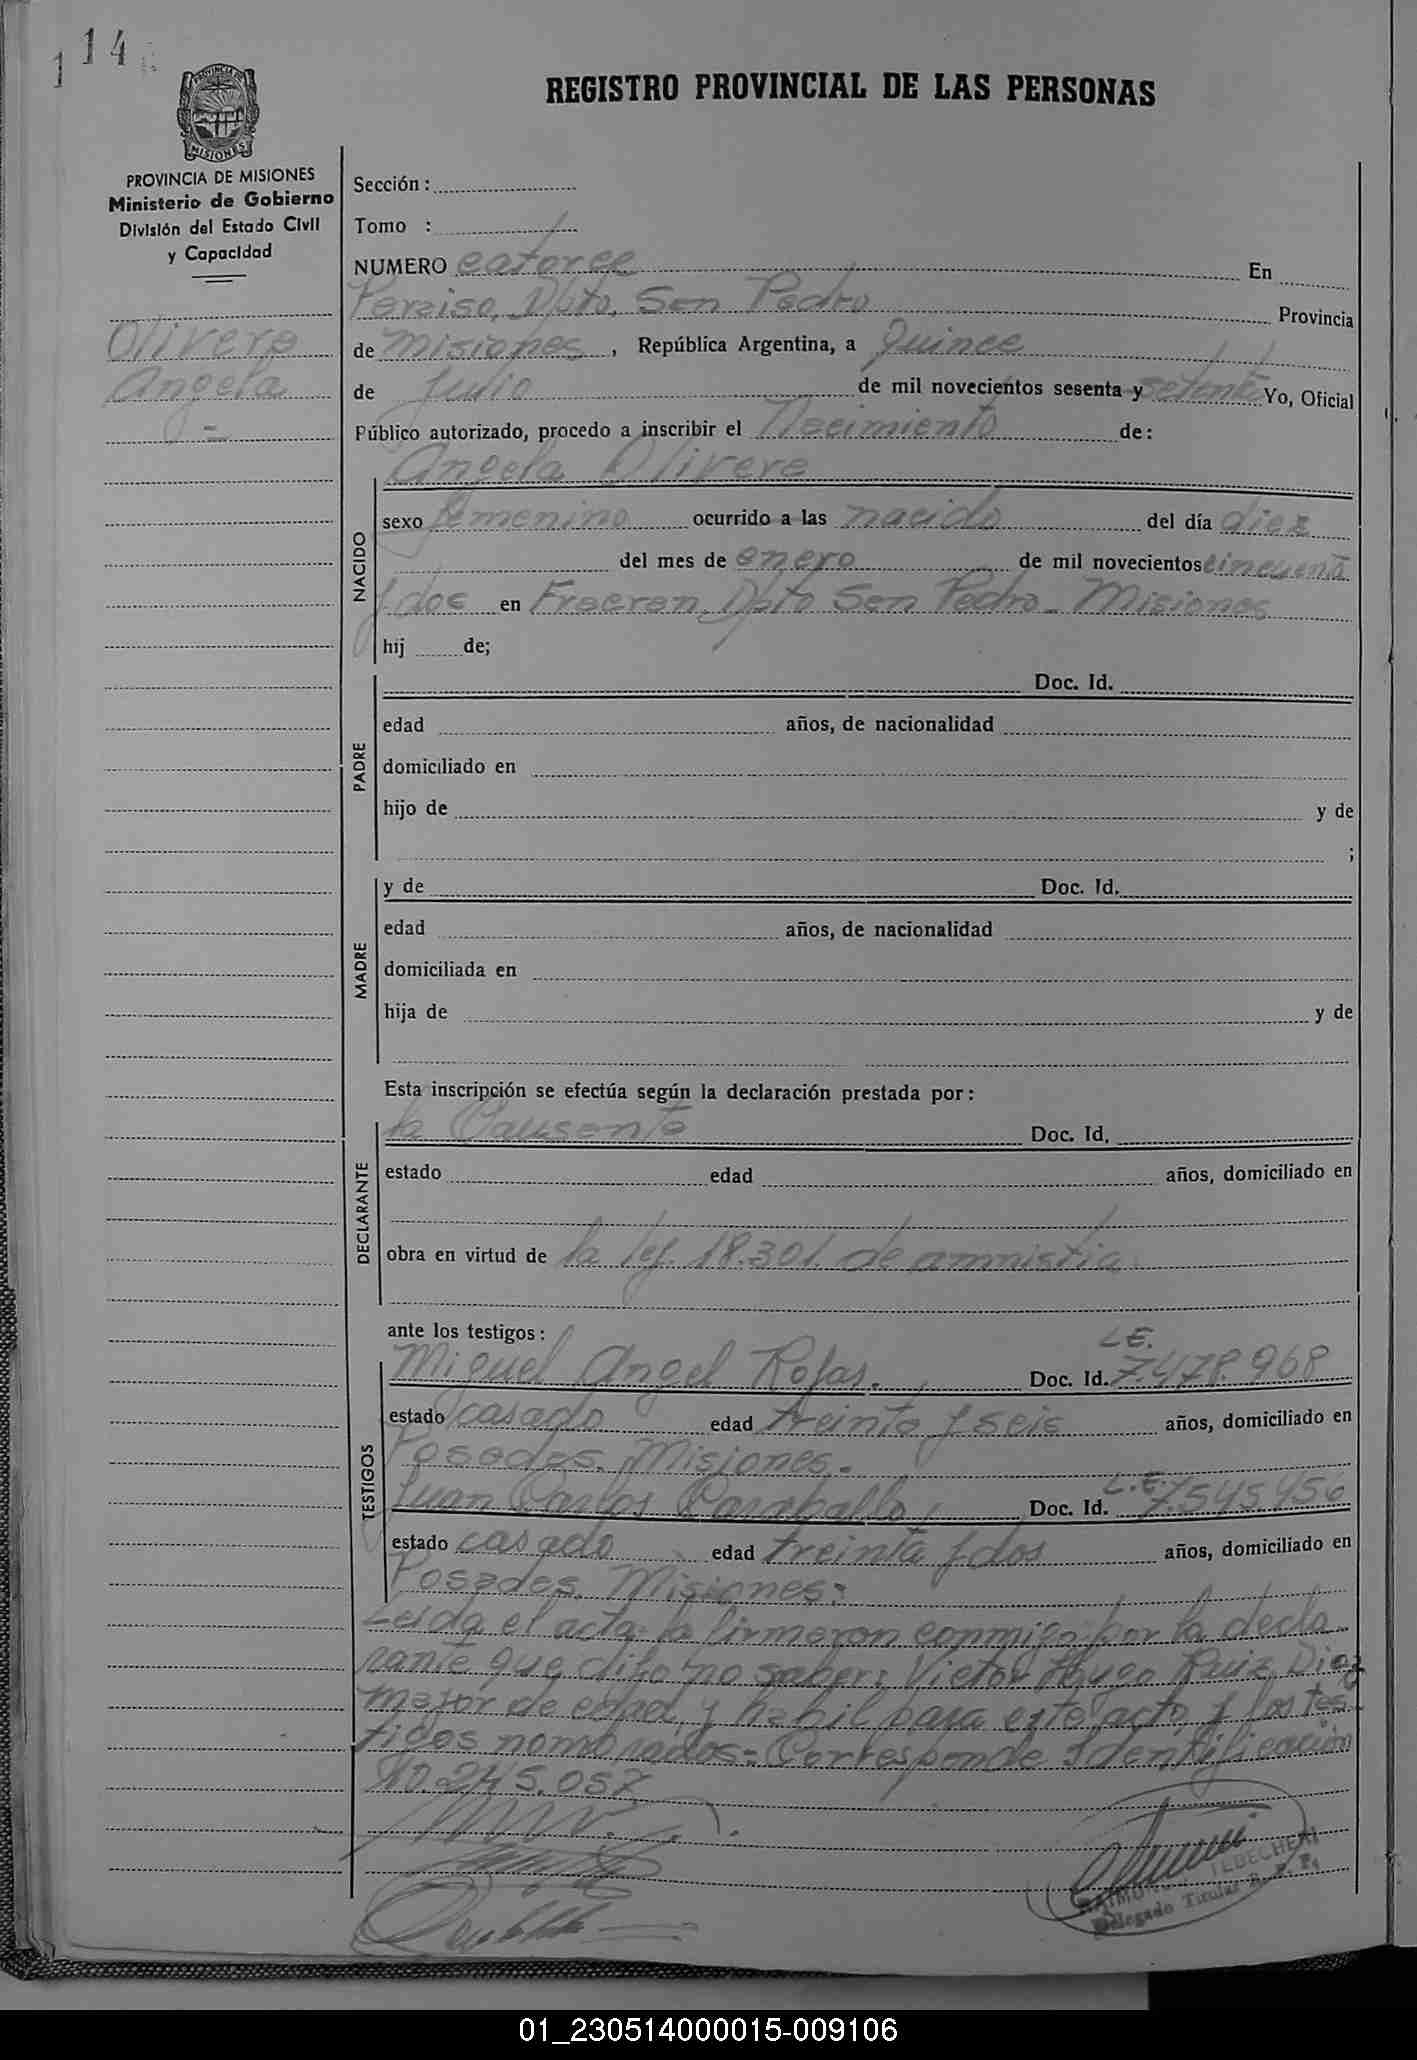 114
REGISTRO PROVINCIAL DE LAS PERSONAS
MISIONES
PROVINCIA DE MISIONES
Ministerio de Gobierno
División del Estado Civil
y Capacidad
Olivera
Angela
Sección:
Tomo :
NUMERO catorce En
Peraiso, Dpto. San Pedro Provincia
de Misiones, República Argentina, a Quince
de Julio de mil novecientos sesenta y setenta Yo, Oficial
Público autorizado, procedo a inscribir el Nacimiento de:
NACIDO
Angela Olivera
sexo femenino ocurrido a las nacido del día diez
del mes de enero de mil novecientos cincuenta
y dos en Fracran, Dpto San Pedro - Misiones
hij de;
PADRE
Doc. Id.
edad años, de nacionalidad
domiciliado en
hijo de y de
;
MADRE
y de Doc. Id.
edad años, de nacionalidad
domiciliada en
hija de y de
Esta inscripción se efectúa según la declaración prestada por:
DECLARANTE
la Causante Doc. Id.
estado edad años, domiciliado en
obra en virtud de la ley. 18.301. de amnistia
ante los testigos:
TESTIGOS
Miguel Angel Rojas. Doc. Id. L.E. 7.478.968
estado casado edad treinta y seis años, domiciliado en
Posadas. Misiones.
Juan Carlos Caraballo, Doc. Id. L.E. 7.545.456
estado casado edad treinta y dos años, domiciliado en
Posadas. Misiones:
Leida el acta la firmaron conmigo: por la decla
rante que dijo no saber: Victor Hugo Ruiz Diaz
mayor de edad, y habil para este acto y los tes-
tigos nombrados = Corresponde Identificación
No. 245.057
Delegado Titular R. P. P.
01_230514000015-009106